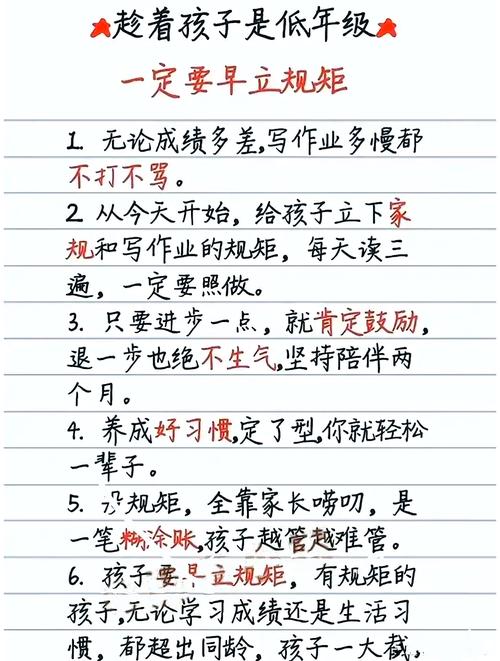 趁着孩子是低年级
一定要早立规矩
1. 无论成绩多差,写作业多慢都
不打不骂。
2. 从今天开始，给孩子立下家
规和写作业的规矩，每天读三
遍，一定要照做。
3. 只要进步一点，就肯定鼓励，
退一步也绝不生气,坚持陪伴两
个月。
4. 养成好习惯,定了型,你就轻松
一辈子。
5. 没规矩，全靠家长唠叨，是
一笔糊涂账,孩子越管越难管。
6. 孩子要早立规矩，有规矩的
孩子,无论学习成绩还是生活习
惯，都超出同龄，孩子一大截，